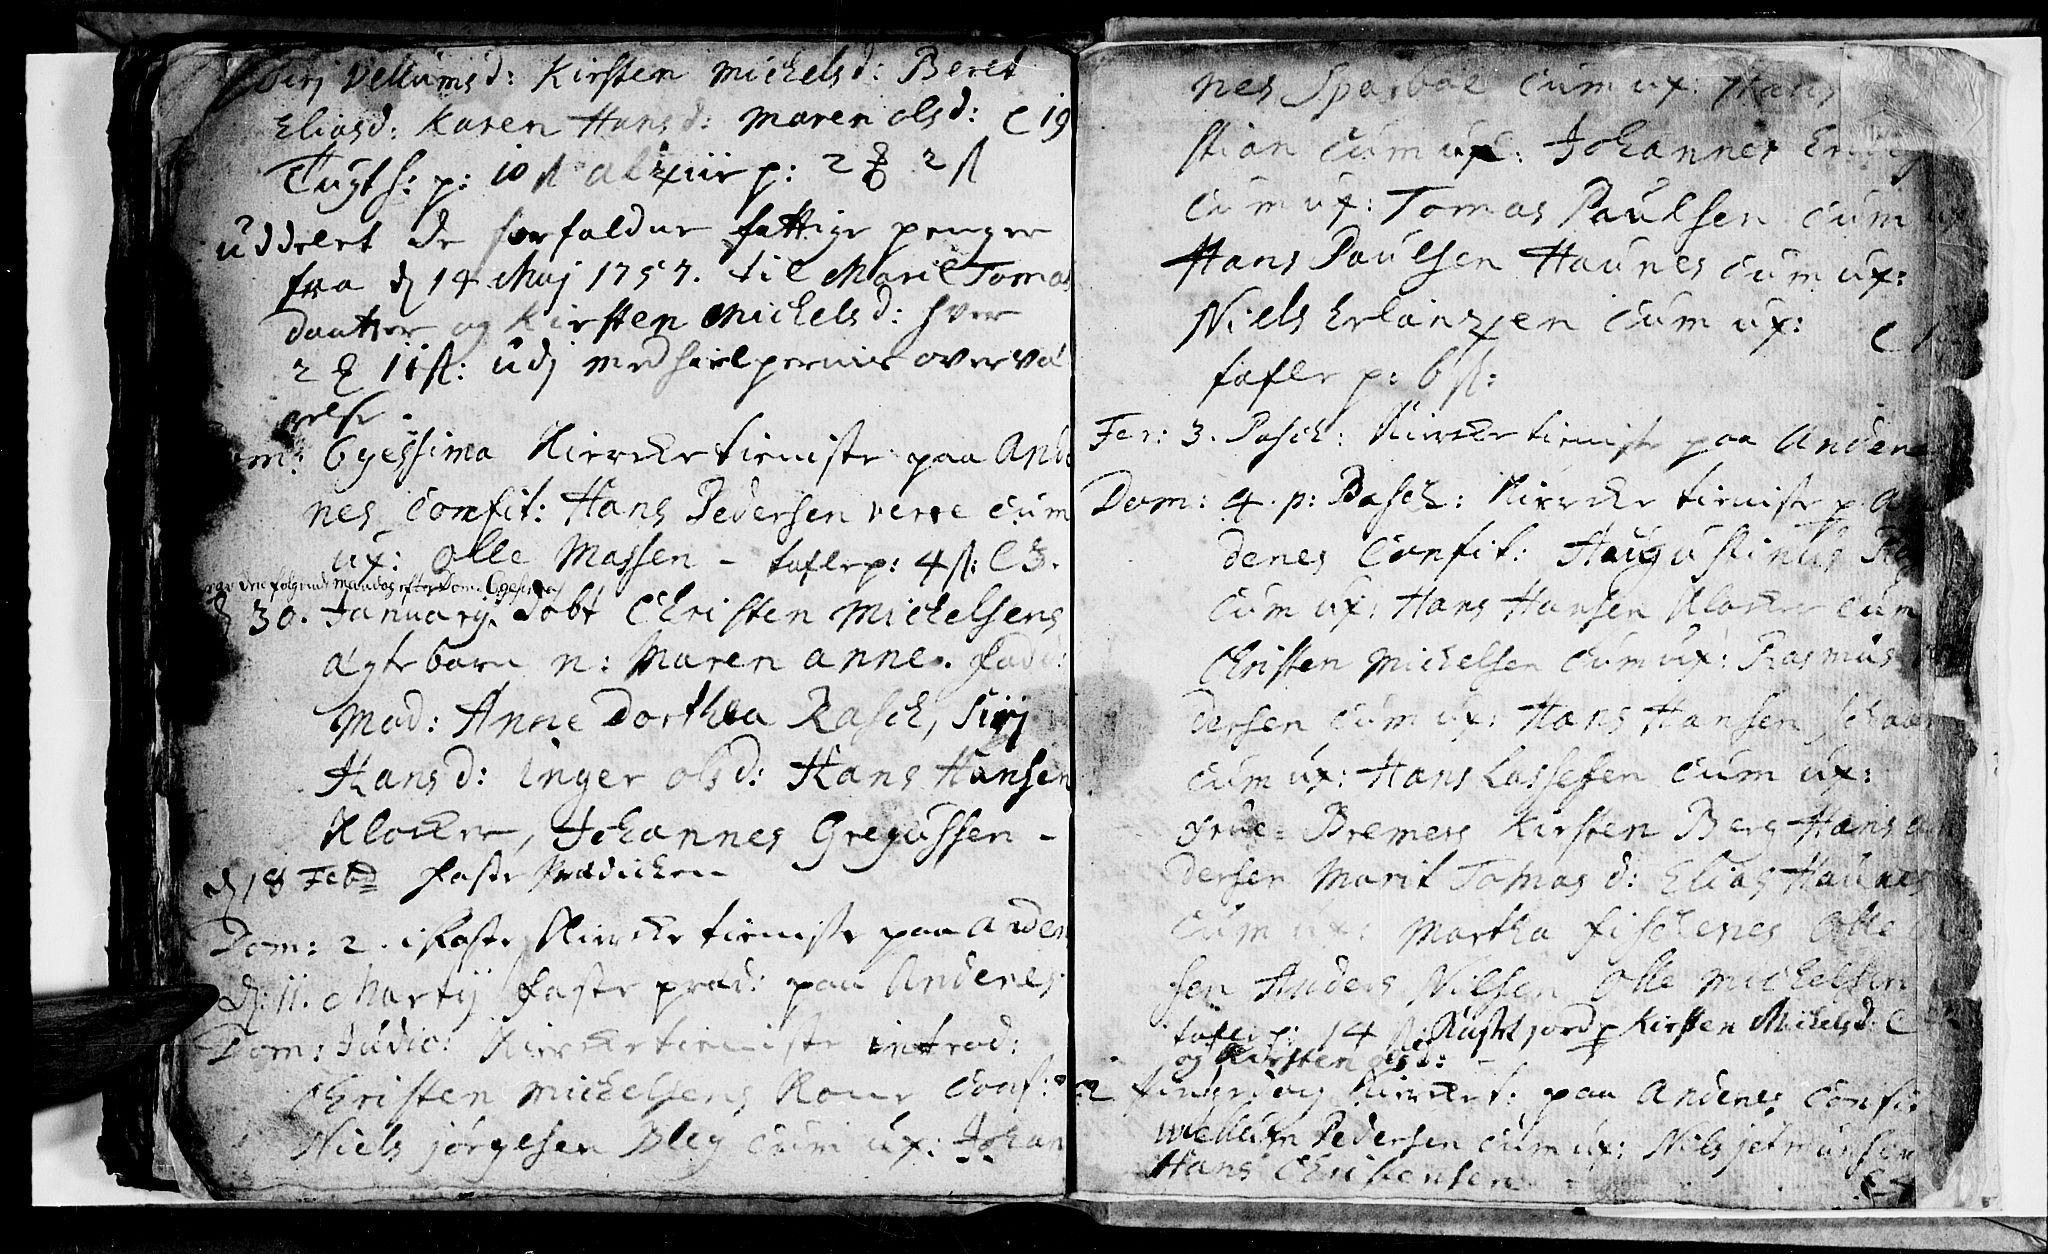 Vellumsd: Kirsten Michelsd: Beret
Eliasd: Karen Hansd: Maren olsd: C 19
Tugth: p: 10 p: 2
uddelt de forfaldne fattige penger
fra d 14 Maj 1757. til Marit Tomas
daatter og Kirsten Michelsd: hver
2 11 ß: udj medhielpernis overvæ
relse.
6gessima Kircketieniste paa Ande
nes Confit: Hans Pedersen verre cum
ux: Olle Massen – tafle p: 4 ß: C 3.
var den følgende Mandag efter Dom: 6gesima
d 30. January. Døbt Christen Michelsens
ægte barn n: Maren Anne. Fadd:
Mad: Anne Dorthea Rasch, Sirj
Hansd: Inger olsd: Hans Hansen
Klocker, Johannes Gregussen –
d 18 Feb faste Prædicken
Dom: 2. i Faste Kircketieniste paa Anden
d: 11. Martij faste præd: paa Andenes
Dom: Judic: Kircketieniste introd:
Christen Michelsens Kone Conf:
Niels jørgesen Bleg cum ux: Johan
nes Sparboe cum ux: Hans
stian cum ux: Johannes
cum ux: Tomas Paulsen cum ux
Hans Paulsen Haunes cum ux:
Niels Erlantzen cum ux:
tafle p: 6 ß:
Fer: 3. Pasch: Kircketieniste paa Andene
Dom: 4. p: Pasch: Kircketieniste p:
denes Confit: Haugustinus
cum ux: Hans Hansen Klocker cum
Christen Michelsen cum ux: Rasmus
dersen cum ux: Hans Hansen
cum ux: Hans Lassesen cum ux:
Frue Bremers Kirsten Berg Hans An
dersen Marit Tomasd: Elias Haunes
cum ux: Martha Fischenes Olle
sen Anders Nilsen Olle Michelsen
tafle p: 14 ß: Kast jord p Kirsten Michelsd:
og Kirsten olsd:
2 pintzedag Kircket: paa Andenes Confit
Wellum Pedersen cum ux: Nils
Hans Christensen